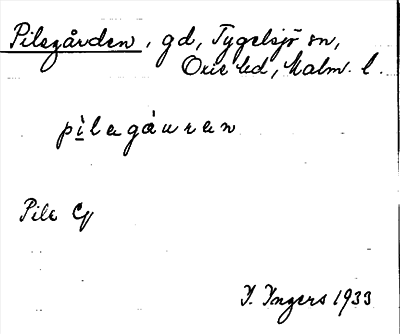 Pilegården, gd, Tygelsjö sn,
Oxie hd, Malm. l.
pìlagá̊uran
Pile G
I. Ingers 1933